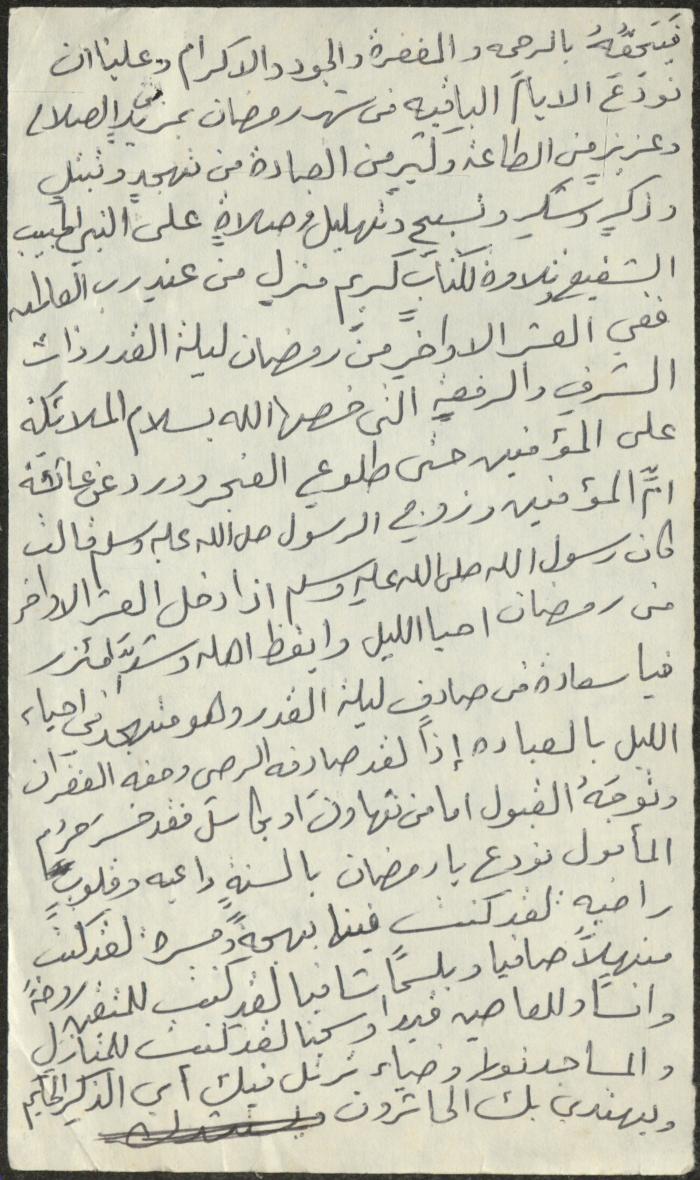 فَيَتحفُّهُ بالرحمه والمغفرة والجود والاكرام وعلينا ان
نودّعَ الايامَ الباقيه من شهر رمضان بمزيدٍ من الصلاة
وعزيزٍ من الطاعة وكثيرٍ من العبادة من تهجدٍ وتبتلٍ
وذكرٍ وشكرٍ وتسبيحٍ وتهليلٍ وصلاةٍ على النبي الحبيب
الشفيع وتلاوة لكتابٍ كريم منزلٍ من عند رب العالمين
ففي العشر الاواخرِ من رمضان ليلة القدر ذات
الشرفِ والرفعةِ التي خصها الله بسلام الملائكة
على المؤمنين حتى طلوعِ الفجر وورد عن عائشة
امِّ المؤمنين وزوجِ الرسول صلى الله عليه وسلم قالت
كان رسول الله صلى الله عليه وسلم اذا دخل العشر الاواخر
من رمضان احيا الليل وايقظ اهله وشدَّ المئزر
فيا سعادة من صادف ليلة القدر وهو متهجد في احياء
الليل بالعباده إذاً لقد صادفه الرضى وحفه الغفران
وتوجَهُ القبول اما من تهاونَ او تكاسل فقد خسر وحُرم
المأمول نودع يا رمضان بالسنةٍ داعيه وقلوبٍ
راضيه لقد كنت فينا بهجةً ومسرة لقد كنت
منهلاً صافيا وبلسمًا شافيا لقد كنت للمتقين روضةً
وانسًا وللعاصين قيدا وسجنا لقد كنت للمنازلِ
والمساجد نورا وضياء ترتل فيك آي الذكر الحكيم
ويهتدي بك الحائرون